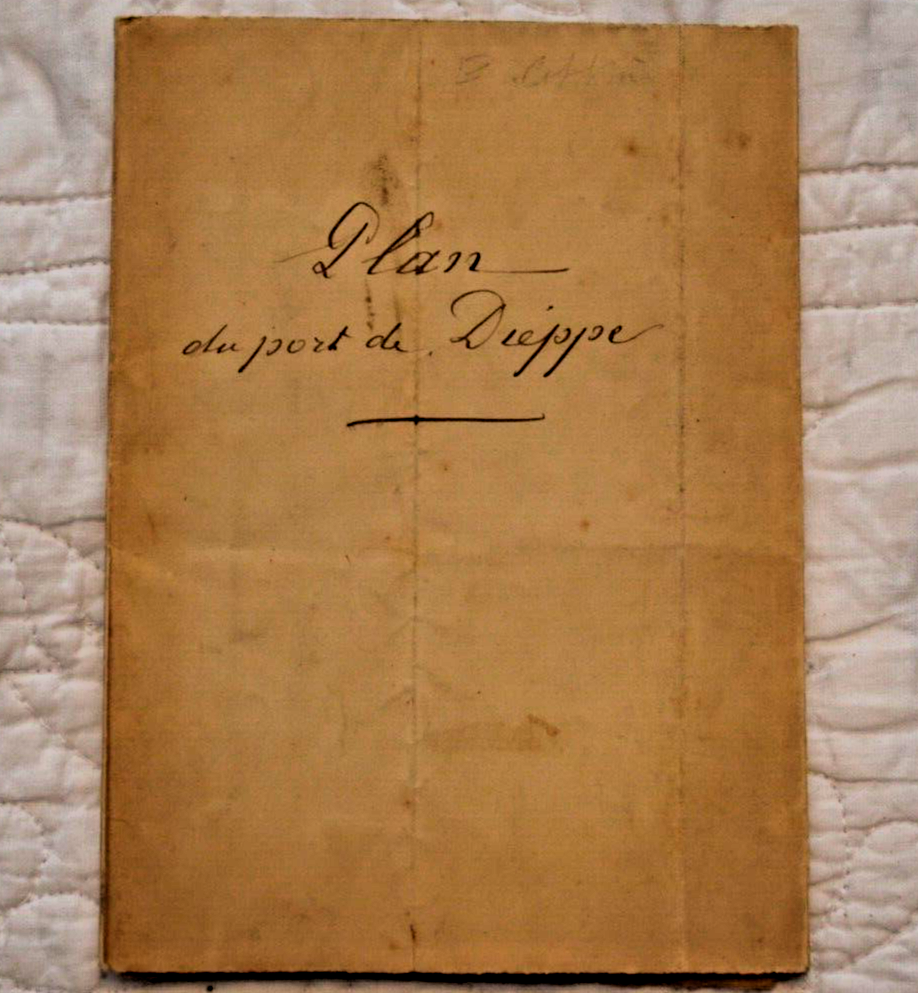 Plan
du port de Dieppe